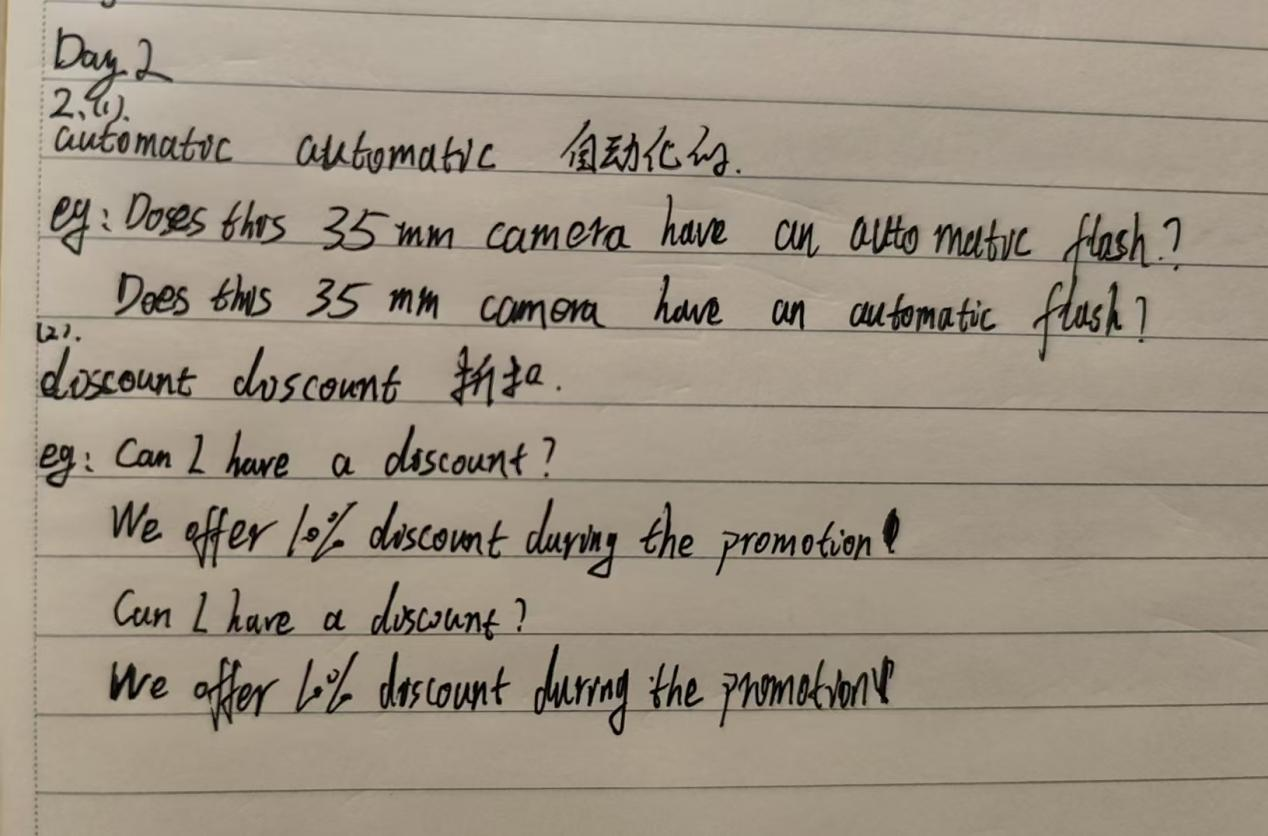 Day 2
2、(1).
automatic automatic 自动化的.
eg: Doses this 35 mm camera have an automatic flash?
Does this 35 mm camera have an automatic flash?
(2).
discount discount 折扣.
eg: Can I have a discount?
We offer 10% discount during the promotion!
Can I have a discount?
We offer 10% discount during the promotion!